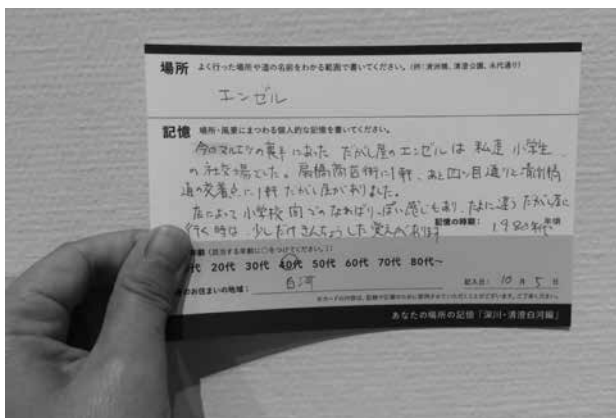 場所 よく行った場所や道の名前をわかる範囲で書いてください。(例：清洲橋、清澄公園、永代通り)
エンゼル
記憶 場所・風景にまつわる個人的な記憶を書いてください。
今のマルエツの裏手にあった だがし屋のエンゼルは 私達小学生
の社交場でした。扇橋商店街に1軒、あと四ツ目通りと清洲橋
通の交差点に1軒だがし屋がありました。
店によって小学校間でのなわばりっぽい感じもあり、たまに違うだがし屋に
行く時は、少しだけきんちょうした覚えがあります
記憶の時期： 1980年代 年頃
年齢 (該当する年齢に○をつけてください。)
代 20代 30代 40代 50代 60代 70代 80代〜
のお住まいの地域： 白河
記入日： 10 月 5 日
あなたの場所の記憶「深川・清澄白河編」